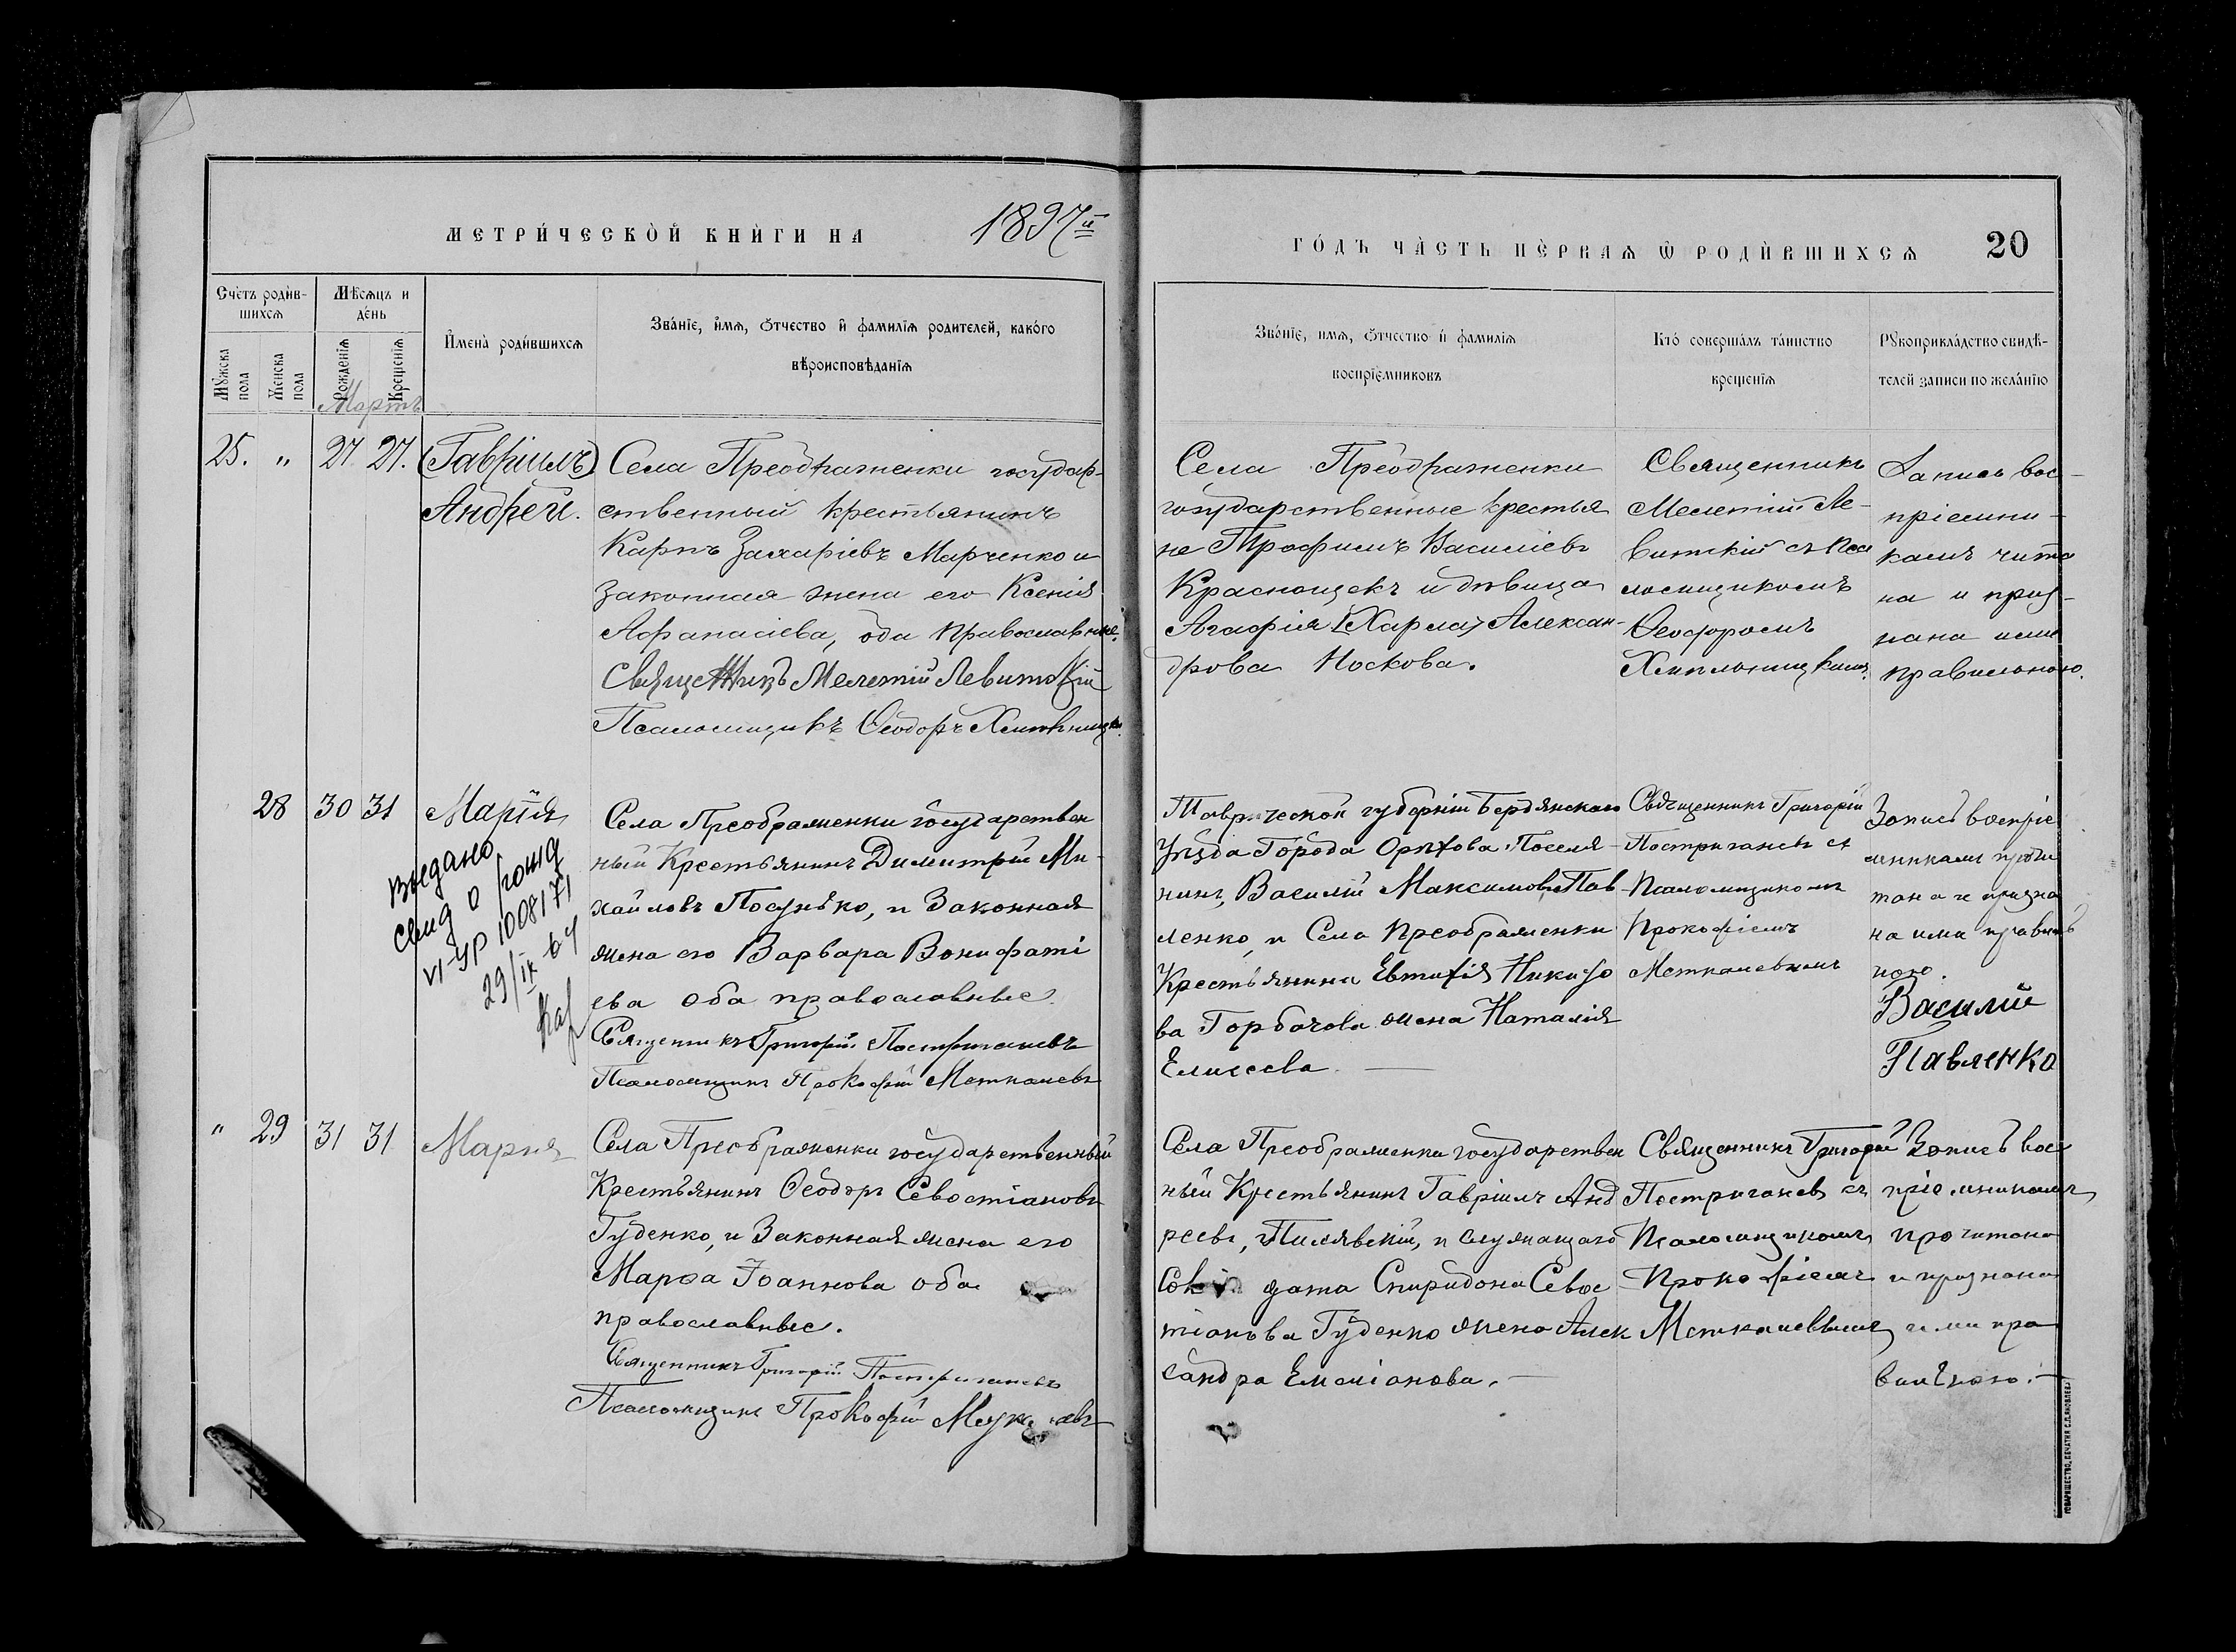 МЕТРИ́ЧЕСКОЙ КНИ́ГИ НА 1897й
ГО́ДЪ ЧА́СТЬ ПЕ́РВАѦ Ѿ РОДИ́ВШИХСѦ 20
Сче́тъ роди́в-
шихсѧ
Мѣ́сѧцъ и
де́нь
И҆мена̀ роди́вшихсѧ
Зва́нїе, и҆́мѧ, ѻ҆́тчество и҆ фами́лїѧ роди́телей, како́го
вѣроисповѣ́данїѧ
Мꙋ́жеска
пола
Же́нска
пола
Рожде́нїѧ
Креще́нїѧ
Мартъ
Зва́нїе, имѧ, ѻ҆́тчество и҆ фами́лїѧ
воспрїе́мниковъ
Кто̀ соверша́лъ та́инство
креще́нїѧ
Рꙋкоприкла́дство свидѣ́-
телей записи по жела́нїю
25. " 27. 27. (Гавріилъ)
Андрей.
Села Преображенки государ-
ственный крестьянинъ
Карпъ Захаріевъ Марченко и
законная жена его Ксенія
Афанасіева, оба православные.
Священникъ Мелетій Левитскій
Псаломщикъ Ѳеодоръ Хмельницкій.
Села Преображенки
государственные крестья
не Трофимъ Василіевъ
Краснощекъ и девица
Агафія (Харла) Алексан-
дрова Носкова.
Священникъ
Мелетій Ле-
витскій съ Пса
ломщикомъ
Ѳеодоромъ
Хмельницкимъ.
Запись вос-
пріемни-
камъ чита
на и приз-
нана ими
правильною.
28 30 31 Марія
Выдано
свид о рожд
VI-УР 1008171
29/IX-64
Села Преображенки государствен
ный Крестьянинъ Димитрій Ми-
хайловъ Посунько, и Законная
жена его Варвара Вонифаті
ева оба православные.
Священникъ Григорій Постригачевъ
Псаломщикъ Прокофій Меткалевъ
Таврической губерніи Бердянскаго
Уѣзда Города Орѣхова Поселя-
нинъ, Василій Максимовъ Пав
ленко, и Села Преображенки
Крестьянина Евтихія Никифо
ва Горбачова жена Наталія
Елисеева.
Священникъ Григорій
Постригачевъ съ
Псаломщикомъ
Прокофіемъ
Меткалевымъ
Запись воспріе
мникамъ прочи
тана и призна
на ими правиль
ною.
Василій
Павленко
" 29 31 31 Мария
Села Преображенки государственный
Крестьянинъ Ѳеодоръ Севостіановъ
Гуденко, и Законная жена его
Марѳа Іоаннова оба
православные.
Священникъ Григорій Постригачевъ
Псаломщикъ Прокофій
Села Преображенки государствен
ный Крестьянинъ Гавріилъ Анд
реевъ, Пилявскій, и служащаго
дата Спиридона Севос
тіанова Гуденко жена Алек
сандра Емеліанова.
Священникъ Григорій
Постригачевъ съ
Псаломщикомъ
Прокофіемъ
Меткалевымъ
Запись вос
пріемникамъ
прочитана
и признана
ими пра
вильною.
ТОВАРИЩЕСТВО, ПЕЧАТНЯ С.П.ЯКОВЛЕВА.